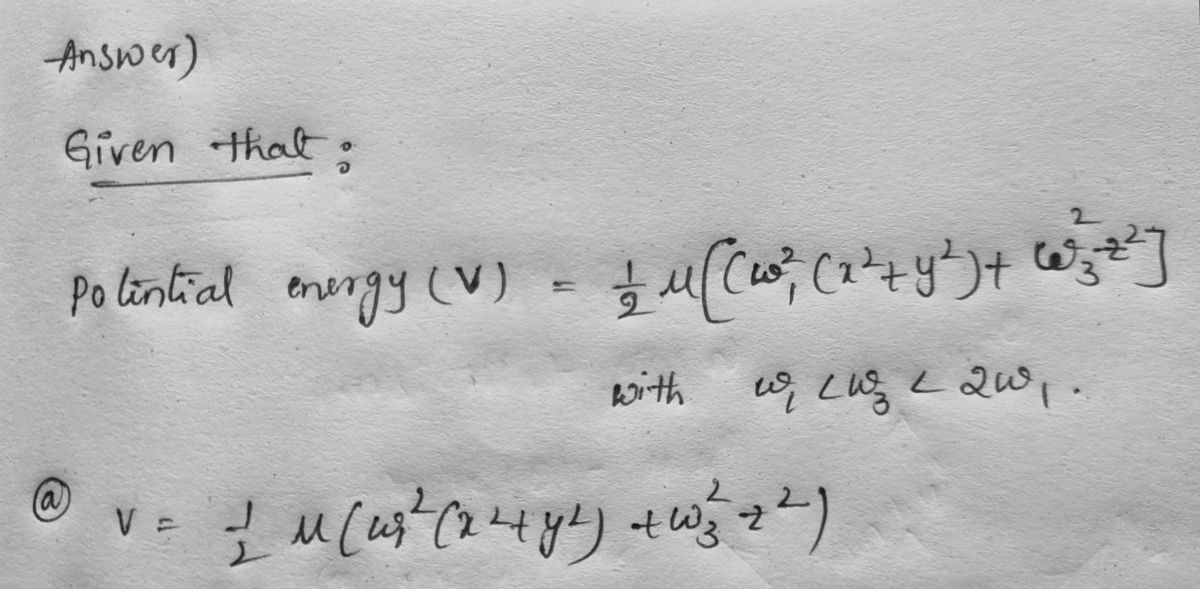 Answer)
Given that :
Potintial energy (V) = 1/2 μ[(ω₁²(x²+y²)+ ω₃²z²]
with ω₁ < ω₃ < 2ω₁.
ⓐ V = 1/2 μ(ω₁²(x²+y²) +ω₃²z²)